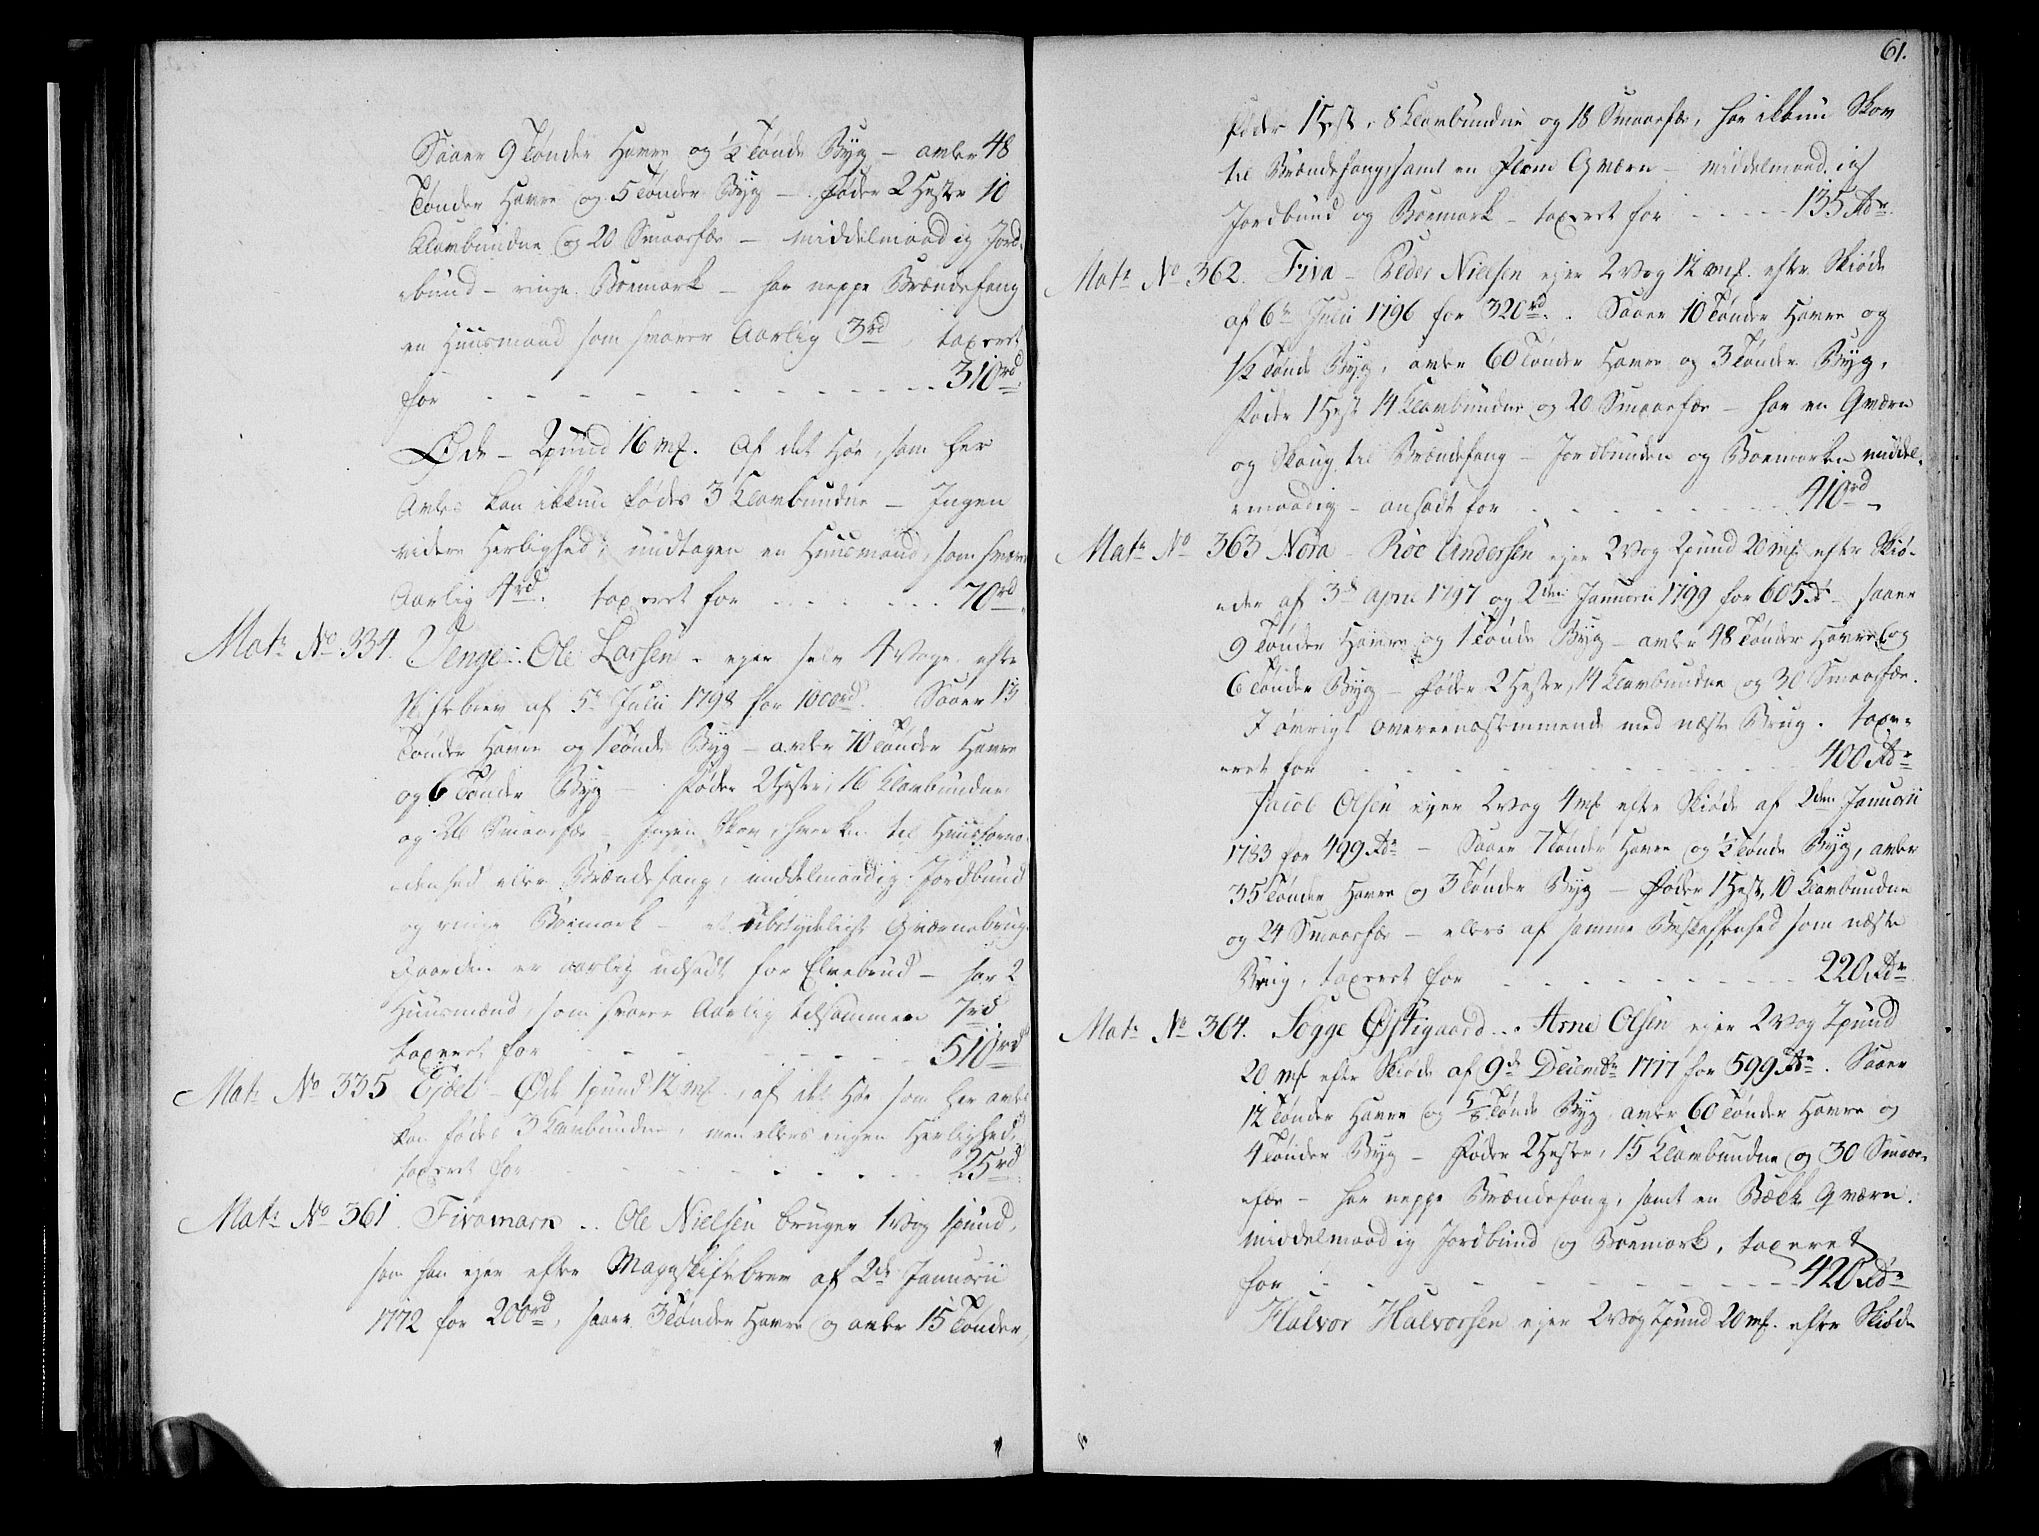 Saaer 9 Tønder Havre og ½ Tønde Byg – avler 48
Tønder Havre og 5 Tønder Byg – føder 2 Heste 10
Klovbundne og 20 Smaafæ – middelmaadig Jord-
bund – ringe Boemark – har neppe Brændefang
en Huusmand som svarer Aarlig 3rd, taxeret
for - - - - - - - - - - - 310rd
Øde – 2pund 16 mk. af det Høe, som her
Avles kan ikkun fødes 3 Klovbundne – Ingen
videre Herlighed, undtagen en Huusmand, som svarer
Aarlig 4rd. taxeret for - - - - - - 70rd.
Matr No 334. Venge. Ole Larsen. ejer selv 4 Voge efter
Skiftebrev af 5t Julii 1798 for 1000rd. Saaer 13
Tønder Havre og 1 Tønde Byg – avler 70 Tønder Havre
og 6 Tønder Byg – føder 2 Heste, 16 Klovbundne
og 26 Smaafæ – Ingen Skov, hverken til Huusforno-
denhed eller Brændefang, middelmaadig Jordbund
og ringe Boemark – et ubetydeligt Qværnebrug
Gaarden er aarlig udsadt for Elvebrud – har 2
Huusmænd, som svarer Aarlig tilsammen 7rd
taxeret for - - - - - - - - 510rd
Matr No 335 – Øde 1pund 12 mk., af det Høe som her avles
kan fødes 3 Klovbundne, men ellers ingen Herlighed,
taxeret for - - - - - - 25rd.
Matr No 361. Fivamarn .. Ole Nielsen bruger 1 Vog 1pund,
som han ejer efter Mageskiftebrev af 2de Januarii
1772 for 200rd, saaer 3 Tønder Havre og avler 15 Tønder,
61.
føder 1 Hest, 8 Klovbundne og 18 Smaafæ, har ikkun Skov
til Brændefang, samt en Flom Qværn – middelmaadig
Jordbund og Boemark – taxeret for - - - - 135 Rdr.
Matr No 362. Fiva – Peder Nielsen ejer 2 Vog 12 mk. efter Skiøde
af 6te Julii 1796 for 320rd. Saaer 10 Tønder Havre og
½ Tønde Byg, avler 60 Tønder Havre og 3 Tønder Byg,
føder 1 Hest 14 Klovbundne og 20 Smaafæ – har en Qværn
og Skoug til Brændefang – Jordbunden og Boemarken middel-
maadig – ansadt for - - - - - - - 410rd
Matr No 363 Nora – Roe Andersen ejer 2 Vog 2pund 20 mk efter Skiø-
der af 3de April 1797 og 2den Januarii 1799 for 605 Rd – saaer
9 Tønder Havre og 1 Tønde Byg – avler 48 Tønder Havre og
6 Tønder Byg – føder 2 Heste, 14 Klovbundne og 30 Smaafæ.
I øvrigt overeensstemmende med næste Brug. taxe-
eret for - - - - - - - - - - - 400 Rdr
Jacob Olsen ejer 2 Vog 4 mk efter Skiøde af 2den Januarii
1783 for 499 Rdr – Saaer 7 Tønder Havre og ½ Tønde Byg, avler
35 Tønder Havre og 3 Tønder Byg – føder 1 Hest, 10 Klovbundne
og 24 Smaafæ – ellers af samme Beskaffenhed som næste
Brug, taxeret for - - - - - - - - 220 Rdr
Matr No 364. Sogge Østigaard .. Arne Olsen ejer 2 Vog 2pund
20 mk efter Skiøde af 9de Decembr 1777 for 599 Rdr. Saaer
12 Tønder Havre og 5/8 Tønde Byg, avler 60 Tønder Havre og
4 Tønder Byg – føder 2 Heste, 15 Klovbundne og 30 Smaa-
fæ – har neppe Brændefang, samt en Bekk Qværn.
middelmaadig Jordbund og Boemark, taxeret
for - - - - - - - - - - - - 420 Rdr
Halvor Halvorsen ejer 2 Vog 2pund 20 mk. efter Skiøde